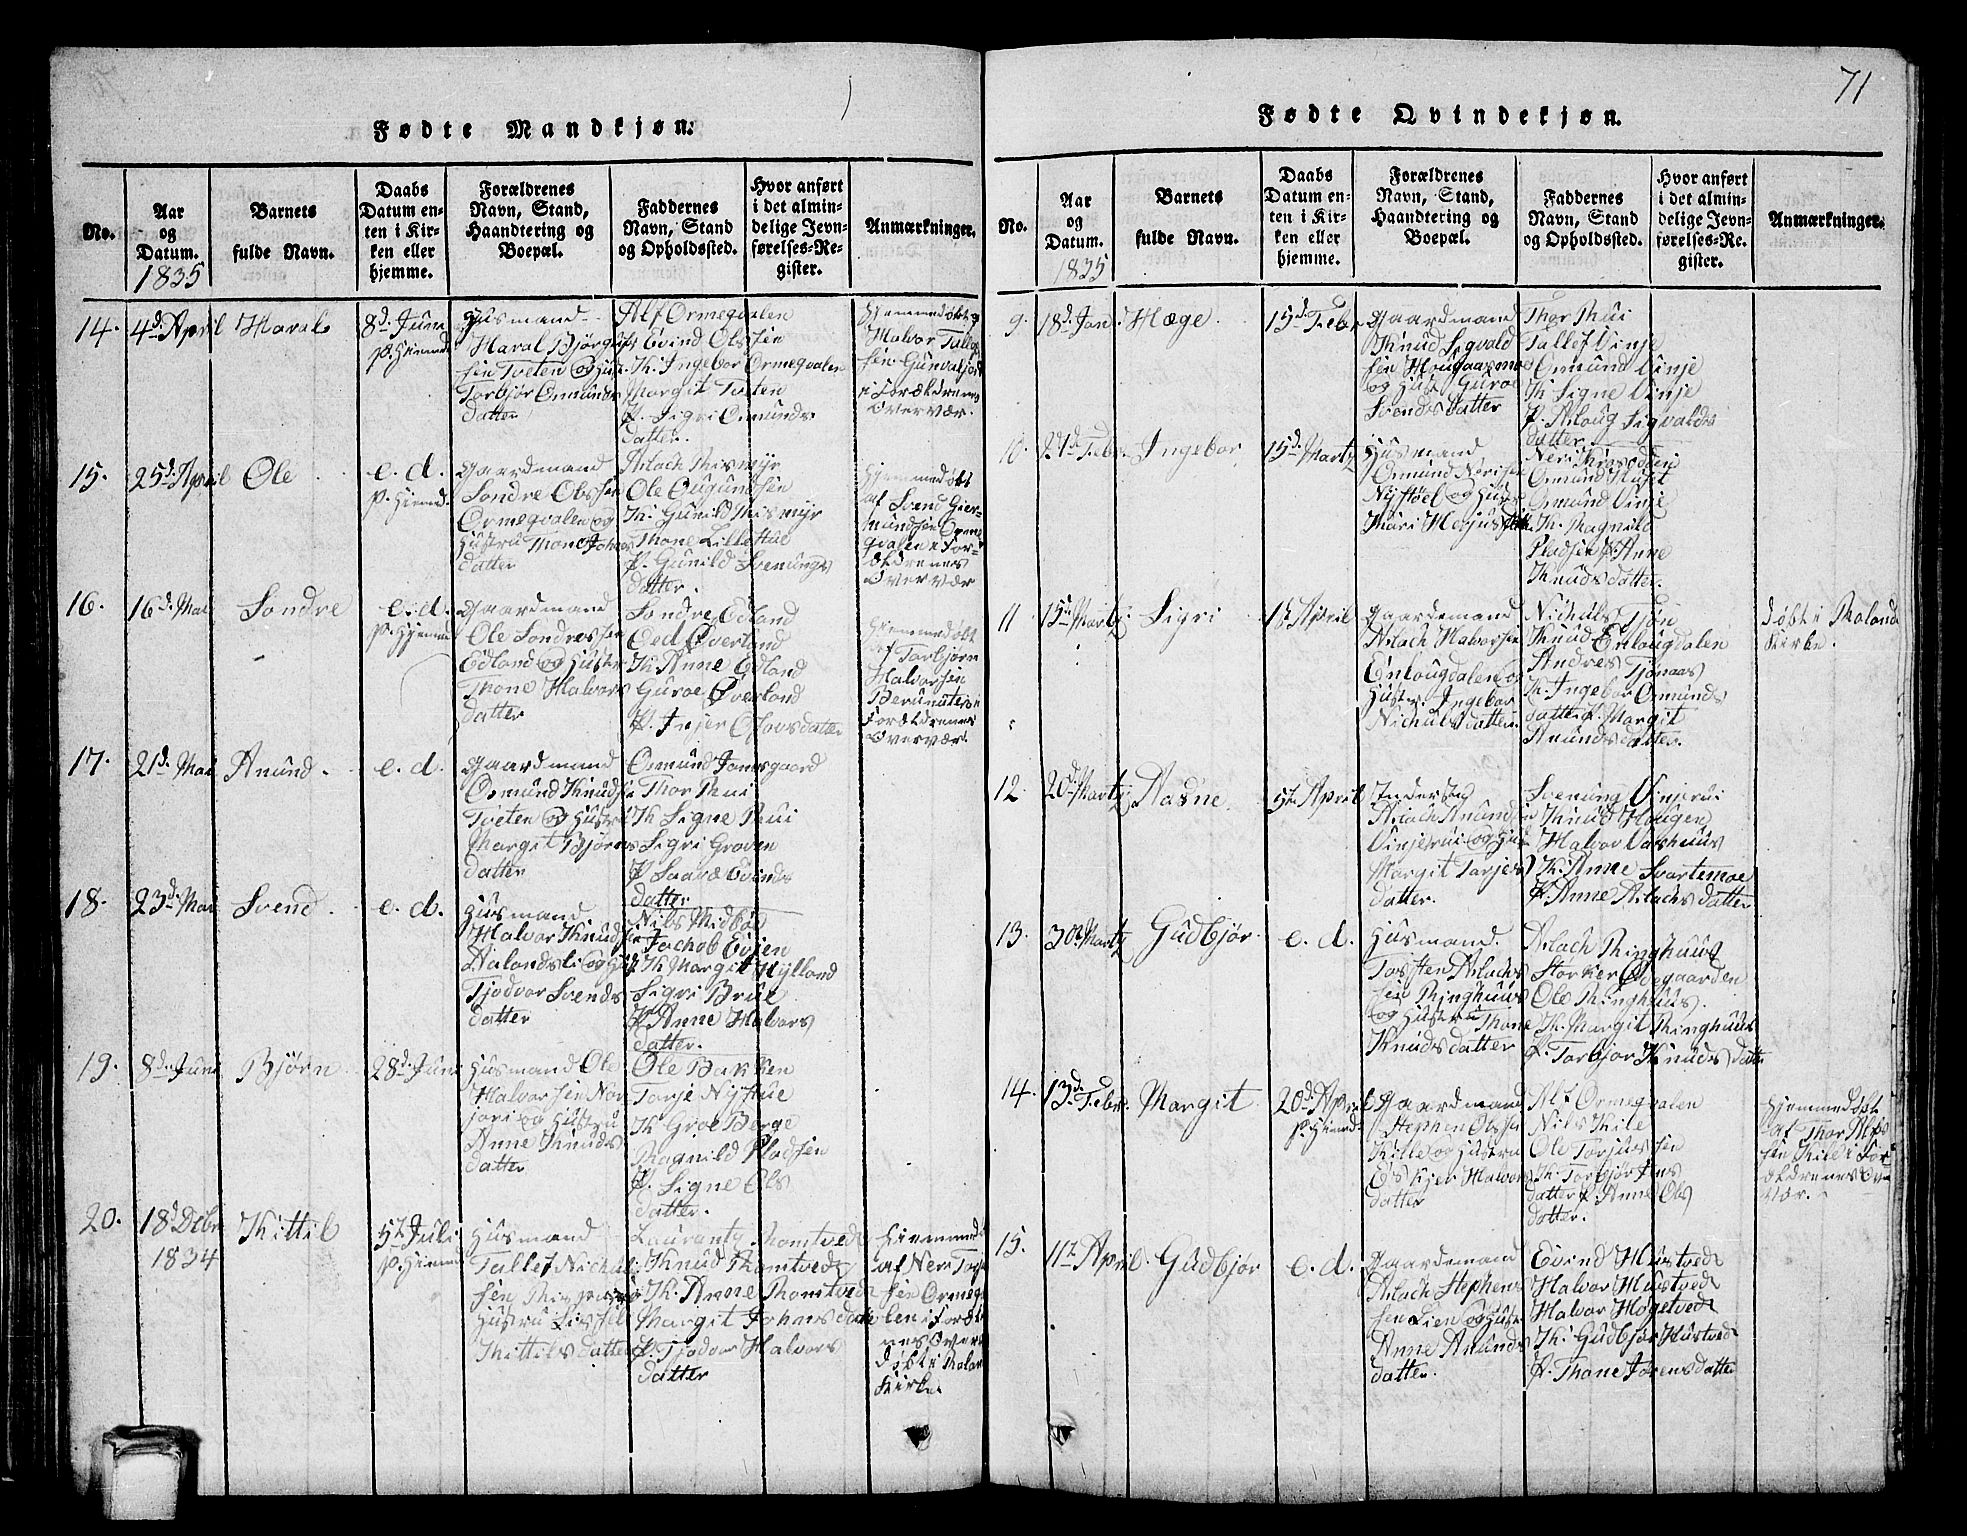 71
Fødte Mandkjøn.
No.
Aar
og
Datum.
1835
Barnets
fulde Navn.
Daabs
Datum en-
ten i Kir-
ken eller
hjemme.
Forældrenes
Navn, Stand,
Haandtering og
Boepæl.
Faddernes
Navn, Stand
og Opholdssted.
Hvor anført
i det almin-
delige Jevn-
førelses-Re-
gister.
Anmærkninger.
14.
4d. April
Haral
8d. Juni
Husmand
Haral Bjørgufs
sen Tveten og Hust.
Torbjør Omunds
datter
Alf Ormeqvalen
Evind Olssen
K. Ingebor Ormeqvalen
Margit Tveten
P. Sigri Omunds
datter.
Hjemmedøbt
Halvor
sen
i Forældrenes
Overvær.
15.
25d. April
Ole
e. d.
Gaardmand
Sondre Olssen
Ormeqvalen og
Hustru Thone Johnes
datter
Aslach
Ole
K. Gunild
Thone Lillestue
P. Gunild Svenungs
datter.
Hjemmedøbt
af Svend Gier-
mundsen Orme
qvalen i For-
ældrenes
Overvær
16.
16d. Mai
Sondre
e. d.
P. Hjemme
Gaardmand
Ole Sondressen
Edland og Hustr
Thone Halvors
datter
Sondre Edland
Øverland
K. Anne Edland
Guroe Øverland
P. Injer Olavsdatter
Hjemmedøbt
af Torbjørn
Halvorsen
Berunuten
Forældrenes
Overvær.
17.
21d. Mai
Anund.
e. d.
Gaardmand
Osmund Knudsen
Tveten og Hustr
Margit Bjørns
datter
Osmund Jamsgaard
Thor Rui
K. Signe Rui
Sigri Groven
P. Evinds
datter
18.
23d. Mai
Svend.
e. d.
Husmand
Halvor Knudsen
Aalandslie og Hust.
Tjodvor Svends
datter
Nils Midbøe
Jachob Evjen
K. Margit Hylland
Sigri Brue
P. Anne Halvors
datter.
19.
8d. Juni
Bjørn
28d. Juni
Husmand Ole
Halvorsen Nor
jori og Hustru
Anne Knuds
datter
Ole Bakken
Torje Nystue
K. Groe Berge
Ragnild Pladsen
P. Signe Ols
datter.
20.
18d. Debr
1834
Kittil
5te Juli
Husmand
Tallef Nichuls
sen
Hustru
Kittils datter
Laurantz Romtvedt
Knud Romtvedt
K. Anne Romtvedt
Margit Johnsdatter
P. Tjodvor Halvors
datter
Hjemmedøbt
af Neri Torjus
sen Ormeqva
len i Foræld
renes Over
døbt i Roland
Kirke.
Fødte Qvindekjøn.
No.
Aar
og
Datum.
1835
Barnets
fulde Navn.
Daabs
Datum en-
ten i Kir-
ken eller
hjemme.
Forældrenes
Navn, Stand,
Haandtering og
Boepæl.
Faddernes
Navn, Stand
og Opholdssted.
Hvor anført
i det almin-
delige Jevn-
førelses-Re-
gister.
Anmærkninger.
9.
18d. Jan.
Hæge.
15d. Febr
Gaardmand
Knud Sigvald
sen Hougaasmoe
og Hust. Guroe
Svends datter
Thor Rui
Tallef Vinje
Omund Vinje
K. Signe Vinje
P. Asloug Sigvalds
datter
10.
Febr.
Ingebor
15d. Martz
Husmand
Omund Nerisen
Nystøel og Hustr
Mari
Neri
Omund
Omund Vinje
K. Ragnild
Pladsen P. Anne
Knuds datter.
11.
15d. Martz
Sigri
April
Gaardmand
Aslach Halvorsen
Enlougdalen og
Hustr. Ingebor
Nichuls datter.
Nichuls Tjøn
Knud Enlougdalen
Andres Tjønaas
K. Ingebor Omunds
datter P. Margit
Anunds datter.
døbt i Roland
Kirke.
12.
20d. Martz
Aasne.
5te April
Inderst
Aslach Anundsen
Vinjerui og Hust
Margit Torjes
datter.
Svenung Vinjerui
Knud Hougen
Halvor Vashuus
K. Anne Svartemoe
P. Anne Aslachs datter
13.
30te Martz
Gudbjør.
e. d.
Husmand.
Torsten Aslachs
sen Ringhuus
og Hustru Thone
Knuds datter
Aslach Ringhuus
Storker Øvegaarden
Ole Ringhuus.
K. Margit Ringhuus
P. Torbjor Knuds datter
14.
13d. Febr.
Margit
20d. April
P. Hiemd.
Gaardmand
Stephen Olssen
Kille og Hustru
Halvors
datter
Alf Ormeqvalen
Nils Kile
Ole Torjussen
K. Torbjør Jens
datter P. Anne Ols
datter.
Hjemmedøbt
af Thor
sen Kile i For
ældrenes Over
vær.
15.
11te April
Gudbjør
e. d.
Gaardemand
Aslach Stephens
sen Lien og Hust
Anne Anunds
datter.
Evind Hustvedt
Halvor Hustvedt
Halvor Høgetvedt
K. Gudbjør Hustvedt
P. Thone Jørens datter